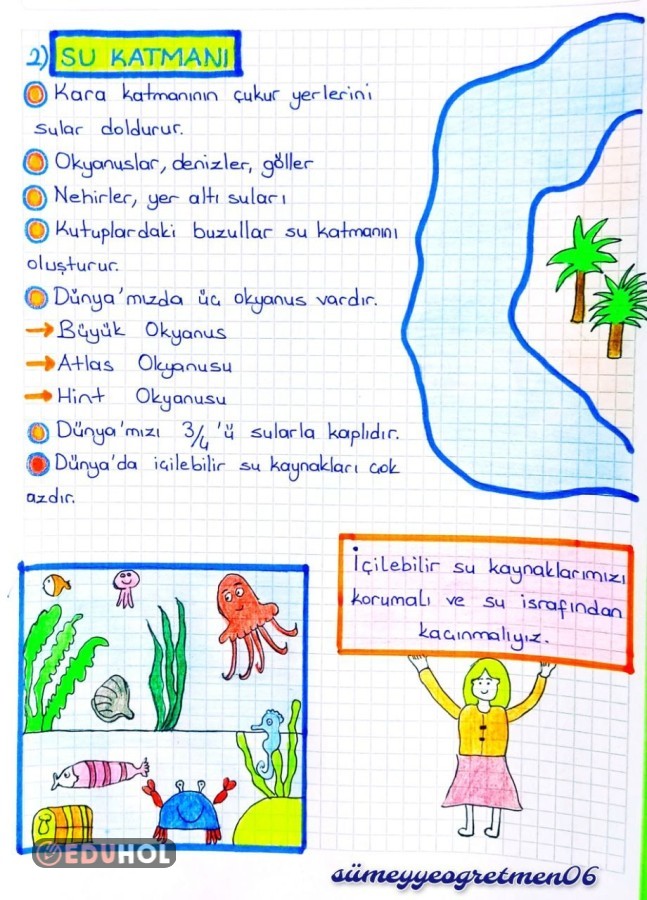 2) SU KATMANI
Kara katmanının çukur yerlerini
sular doldurur.
Okyanuslar, denizler, göller
Nehirler, yer altı suları
Kutuplardaki buzullar su katmanını
oluşturur.
Dünya'mızda üç okyanus vardır.
Büyük Okyanus
Atlas Okyanusu
Hint Okyanusu
Dünya'mızı 3/4'ü sularla kaplıdır.
Dünya'da içilebilir su kaynakları çok
azdır.
İçilebilir su kaynaklarımızı
korumalı ve su israfından
kaçınmalıyız.
EDUHOL
sümeyyeogretmen06